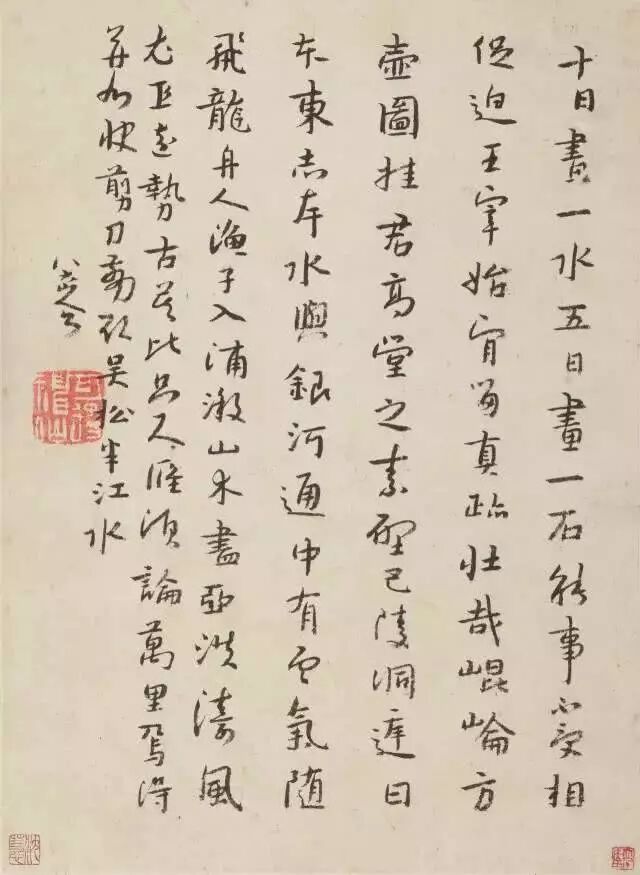 十日畫一水五日畫一石能事不受相
促迫王宰始肯留真跡壯哉崐崘方
壺圖挂君高堂之素壁巴陵洞庭日
本東赤岸水與銀河通中有雲氣隨
飛龍舟人漁子入浦漵山木盡亞洪濤風
尤工遠勢古莫比咫尺應須論萬里焉得
并州快剪刀剪取吳松半江水
八大山人
可得神仙